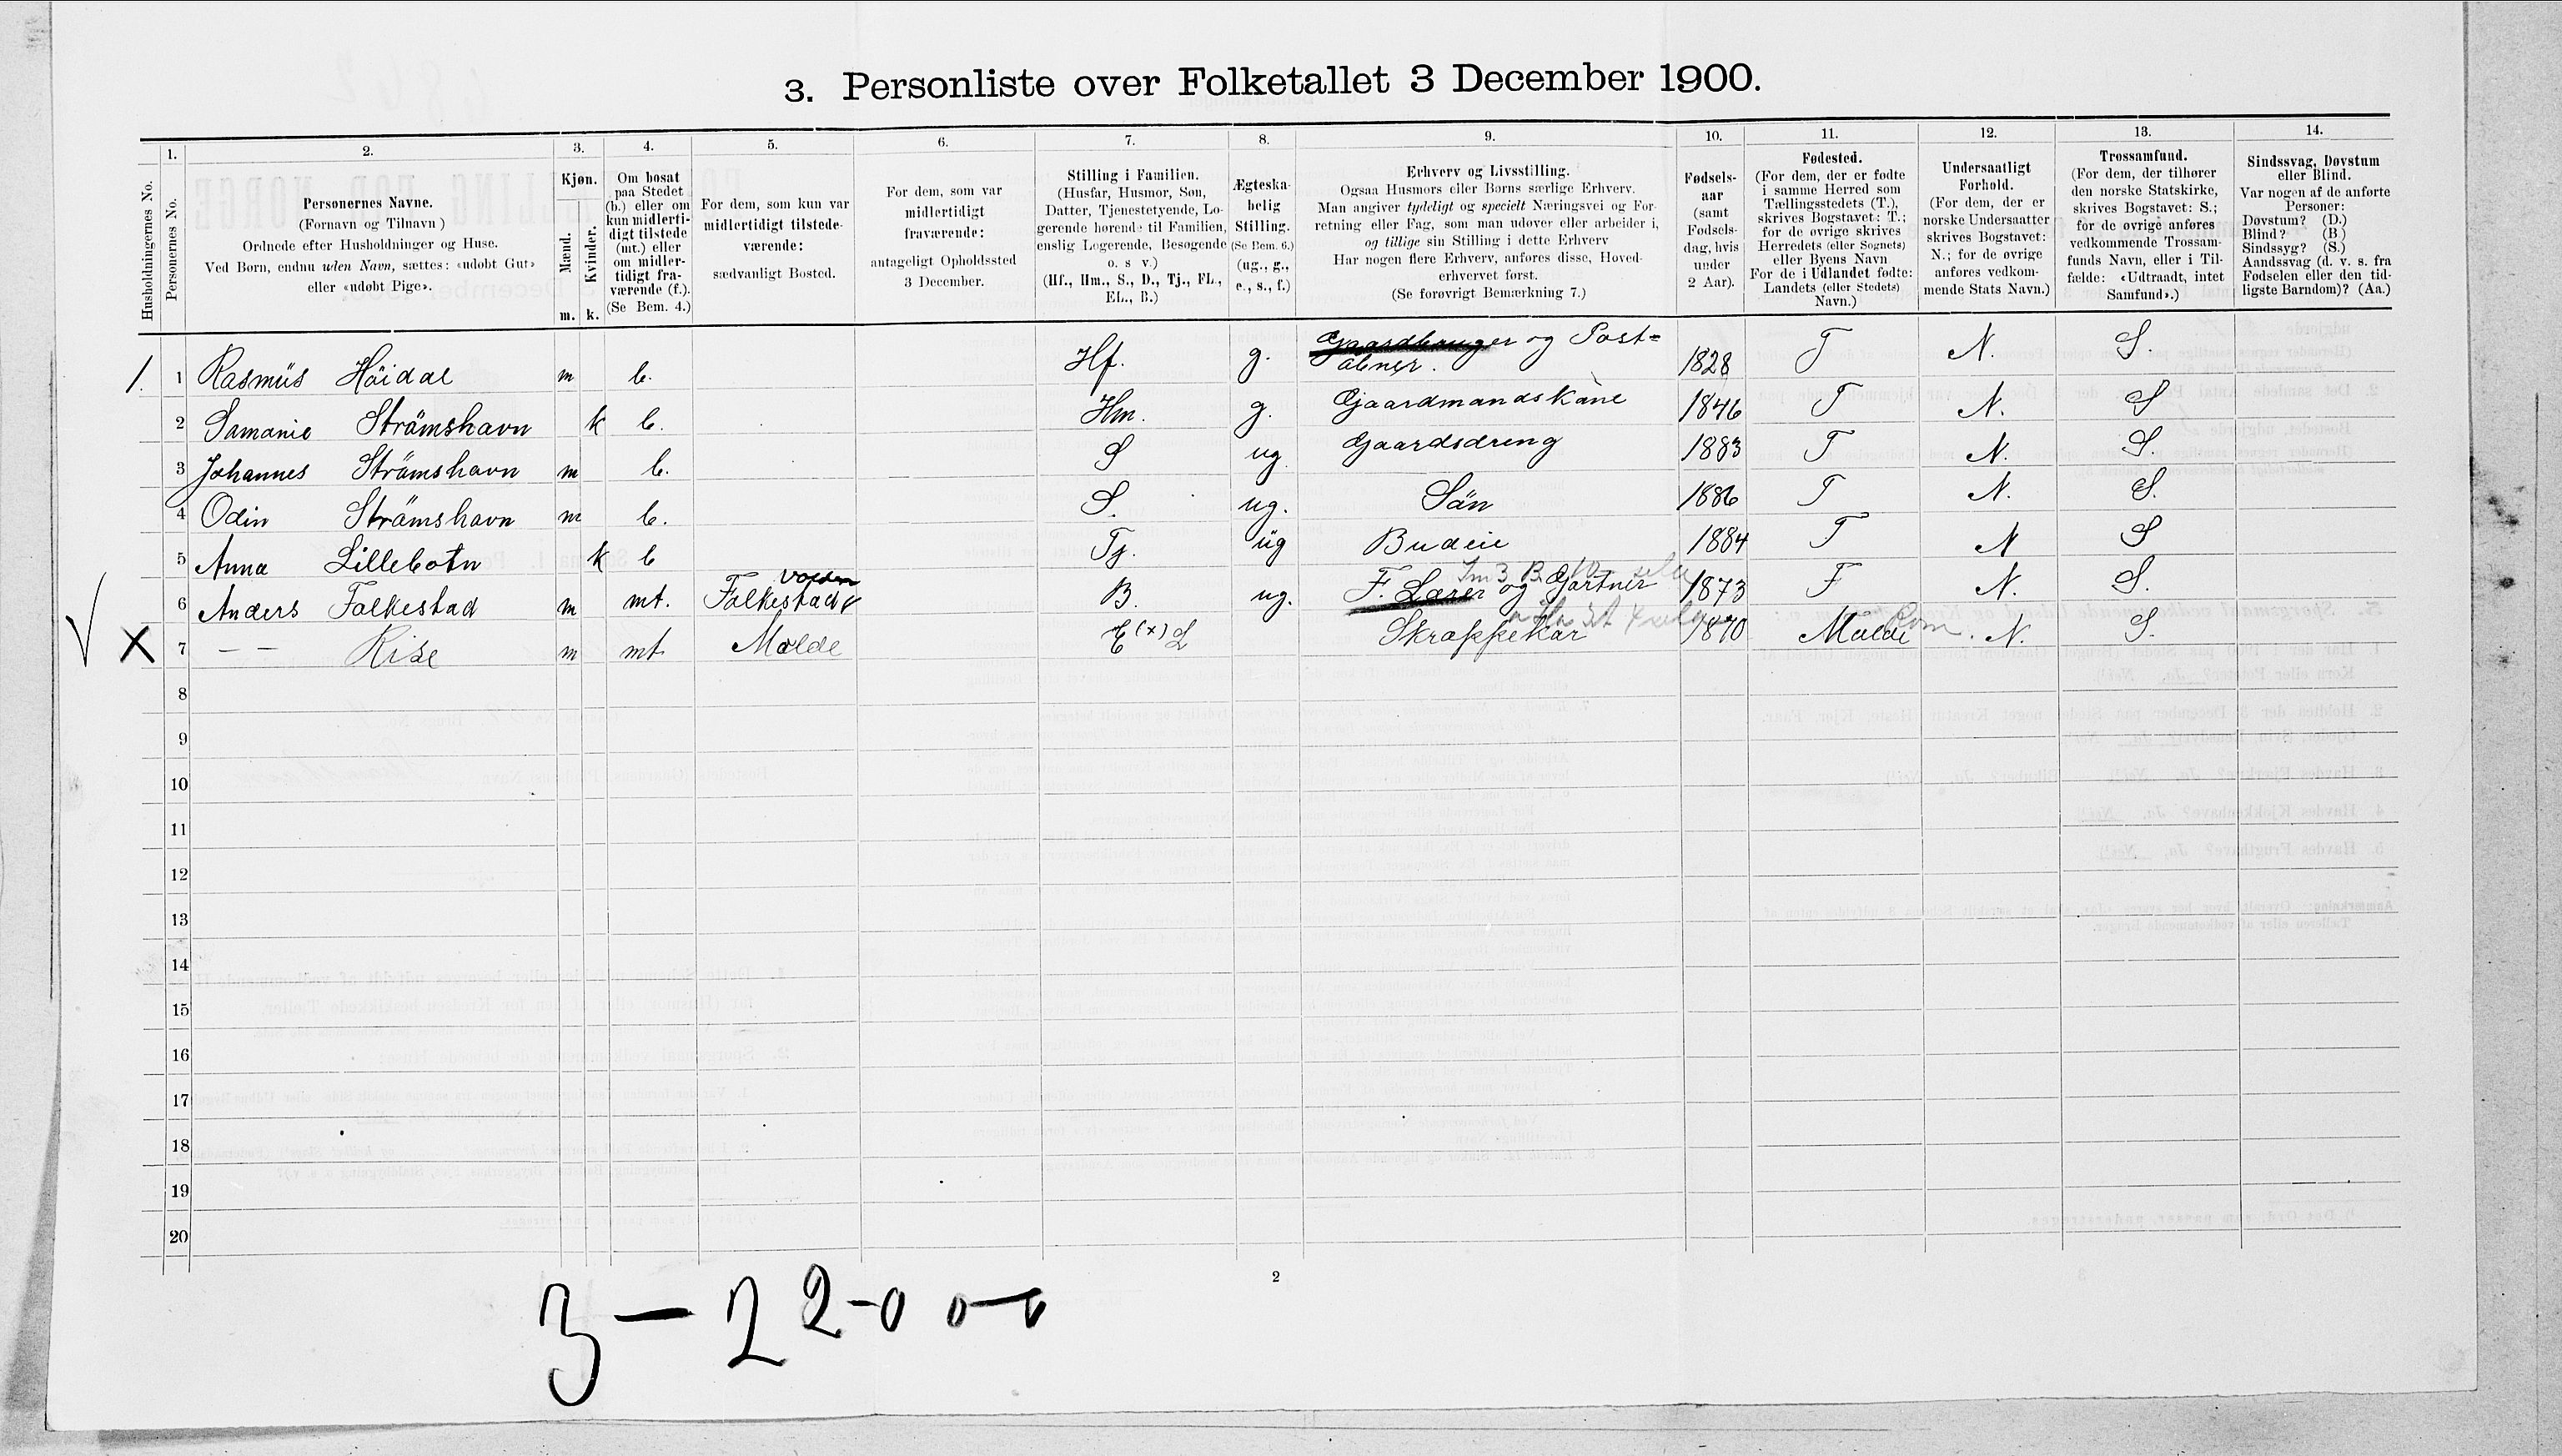 3. Personliste over Folketallet 3 December 1900.
1. 2. 3. 4. 5. 6. 7. 8. 9. 10. 11. 12. 13. 14.
Husholdningernes No.
Personernes No.
Personernes Navne.
(Fornavn og Tilnavn)
Ordnede efter Husholdninger og Huse.
Ved Børn, endnu uden Navn, sættes: «udøbt Gut»
eller «udøbt Pige».
Kjøn.
Mænd.
Kvinder.
m. k.
Om bosat
paa Stedet
(b.) eller om
kun midlerti-
digt tilstede
(mt.) eller
om midler-
tidigt fra-
værende (f.).
(Se Bem. 4.)
For dem, som kun var
midlertidigt tilstede-
værende:
sædvanligt Bosted.
For dem, som var
midlertidigt
fraværende:
antageligt Opholdssted
3 December.
Stilling i Familien.
(Husfar, Husmor, Søn,
Datter, Tjenestetyende, Lo-
gerende hørende til Familien,
enslig Logerende, Besøgende
o. s v.)
(Hf., Hm., S., D., Tj., FL.,
EL., B.)
Ægteska-
belig
Stilling.
(Se Bem. 6.)
(ug., g.,
e., s., f.)
Erhverv og Livsstilling.
Ogsaa Husmors eller Børns særlige Erhverv.
Man angiver tydeligt og specielt Næringsvei og For-
retning eller Fag, som man udøver eller arbeider i,
og tillige sin Stilling i dette Erhverv
Har nogen flere Erhverv, anføres disse, Hoved-
erhvervet først.
(Se forøvrigt Bemærkning 7.)
Fødsels-
aar
(samt
Fødsels-
dag, hvis
under
2 Aar).
Fødested.
(For dem, der er fødte
i samme Herred som
Tællingsstedets (T.),
skrives Bogstavet: T.;
for de øvrige skrives
Herredets (eller Sognets)
eller Byens Navn
For de i Udlandet fødte:
Landets (eller Stedets)
Navn.)
Undersaatligt
Forhold.
(For dem, der er
norske Undersaatter
skrives Bogstavet:
N.; for de øvrige
anføres vedkom-
mende Stats Navn.)
Trossamfund.
(For dem, der tilhører
den norske Statskirke,
skrives Bogstavet: S.;
for de øvrige anføres
vedkommende Trossam-
funds Navn, eller i Til-
fælde: «Udtraadt, intet
Samfund».)
Sindssvag, Døvstum
eller Blind.
Var nogen af de anførte
Personer:
Døvstum? (D.)
Blind? (B.)
Sindssyg? (S.)
Aandssvag (d. v. s. fra
Fødselen eller den tid-
ligste Barndom)? (Aa.)
1. 1 Rasmus Höidal m b. Hf. g. Gaardbruger og Post= 1828 T N. S.
åbner.
2 Samanie Strömshavn k b. Hm. g. Gjaardmandskane 1846 T N. S
3 Johannes Strömshavn m b. S ug Gaardsdreng 1883 T N. S.
4 Odin Strömshavn m b. S. ug. Sön 1886 T N. S.
5 Anna Lillebotn k b Tj. ug Budeie 1884 T N S
volden
6 Anders Falkestad m mt. Falkestad B. ug. F. Lærer og Gartner 1873 F N. S.
V X 7 — — Rise m mt Molde E (x) L Skrappekar 1870 Molde N. S.
Rom
8
9
10
11
12
13
14
15
16
17
18
19
20
2
3 — 2 2 - 0 0 - 0